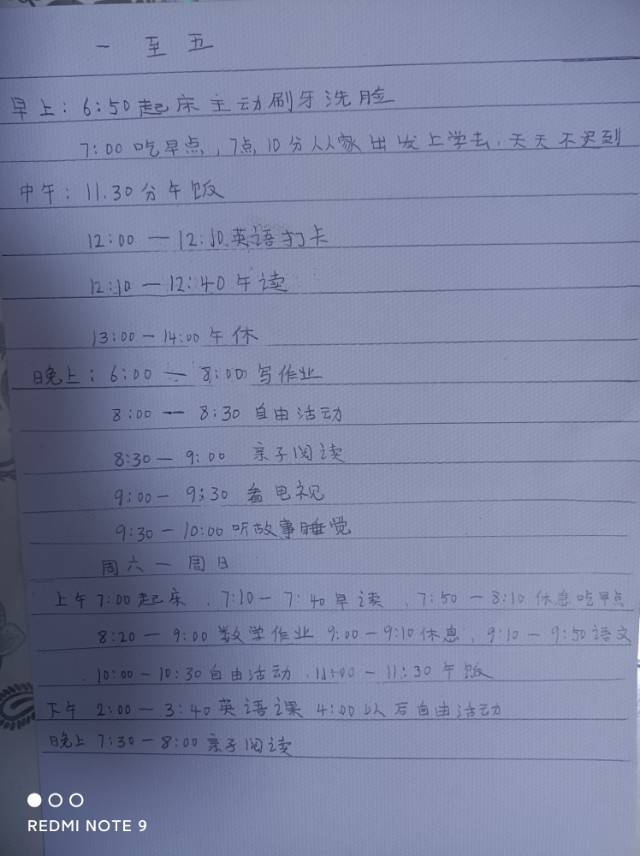 一 至 五
早上：6:50起床 主动刷牙洗脸
7:00吃早点，7点10分从家出发上学去，天天不迟到
中午：11.30分午饭
12:00 — 12:10英语打卡
12:10 — 12:40午读
13:00 — 14:00午休
晚上：6:00 — 8:00写作业
8:00 — 8:30 自由活动
8:30 — 9:00 亲子阅读
9:00 — 9:30 看电视
9:30 — 10:00听故事睡觉
周六 — 周日
上午 7:00起床，7:10 — 7:40早读，7:50 — 8:10 休息吃早点
8:20 — 9:00 数学作业 9:00 — 9:10休息，9:10 — 9:50语文
10:00 — 10:30自由活动，11:00 — 11:30 午饭
下午 2:00 — 3:40英语课 4:00以后自由活动
晚上 7:30 — 8:00亲子阅读
REDMI NOTE 9